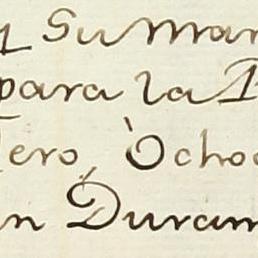 y su mar
para la
ero, òcho
n Duran